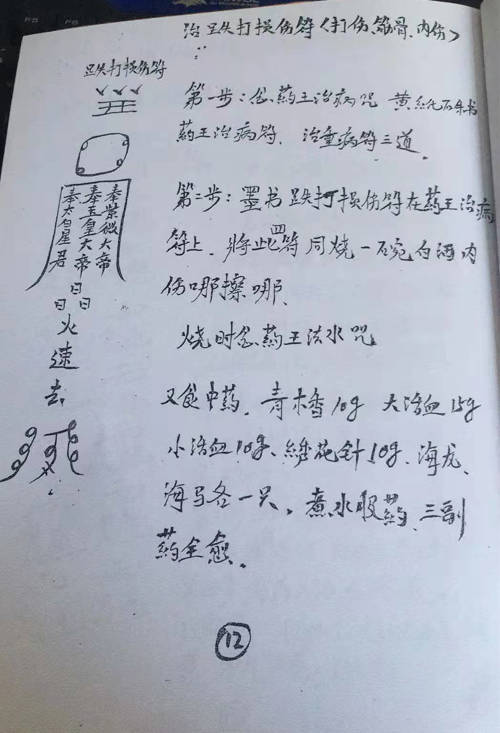 治跌打损伤符(打伤、筋骨、内伤)
跌打损伤符
奉紫微大帝
奉玉皇大帝
奉太白星君
日
日日
火
速
去
第一步:念药王治病咒 黄纸朱书
药王治病符、治重病符三道。
第二步:墨书跌打损伤符在药王治病
符上。将此四符同烧一碗白酒内
伤哪擦哪、
烧时念药王法水咒
又食中药。青木香10g 大活血15g
小活血10g、绣花针10g、海龙、
海马各一只。煮水服药、三副
药全愈。
12